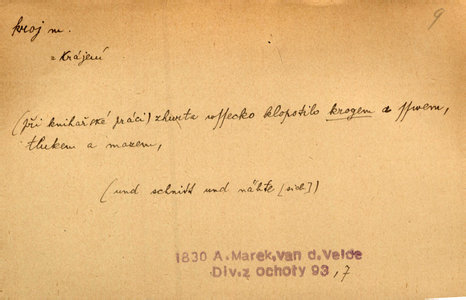 9
kroj m.
= Krájení
(při knihařské práci) zhurta wssecko klopotilo krogem a sswem,
tlukem a mazem,
(und schnitt und nähte [sich])
1830 A.Marek,van d.Velde
Div.z ochoty 93,7